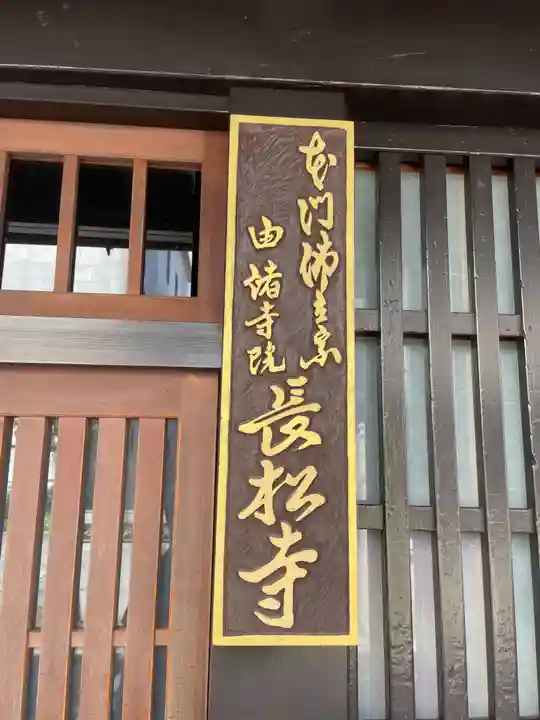 本门佛立宗
由緒寺院
長松寺